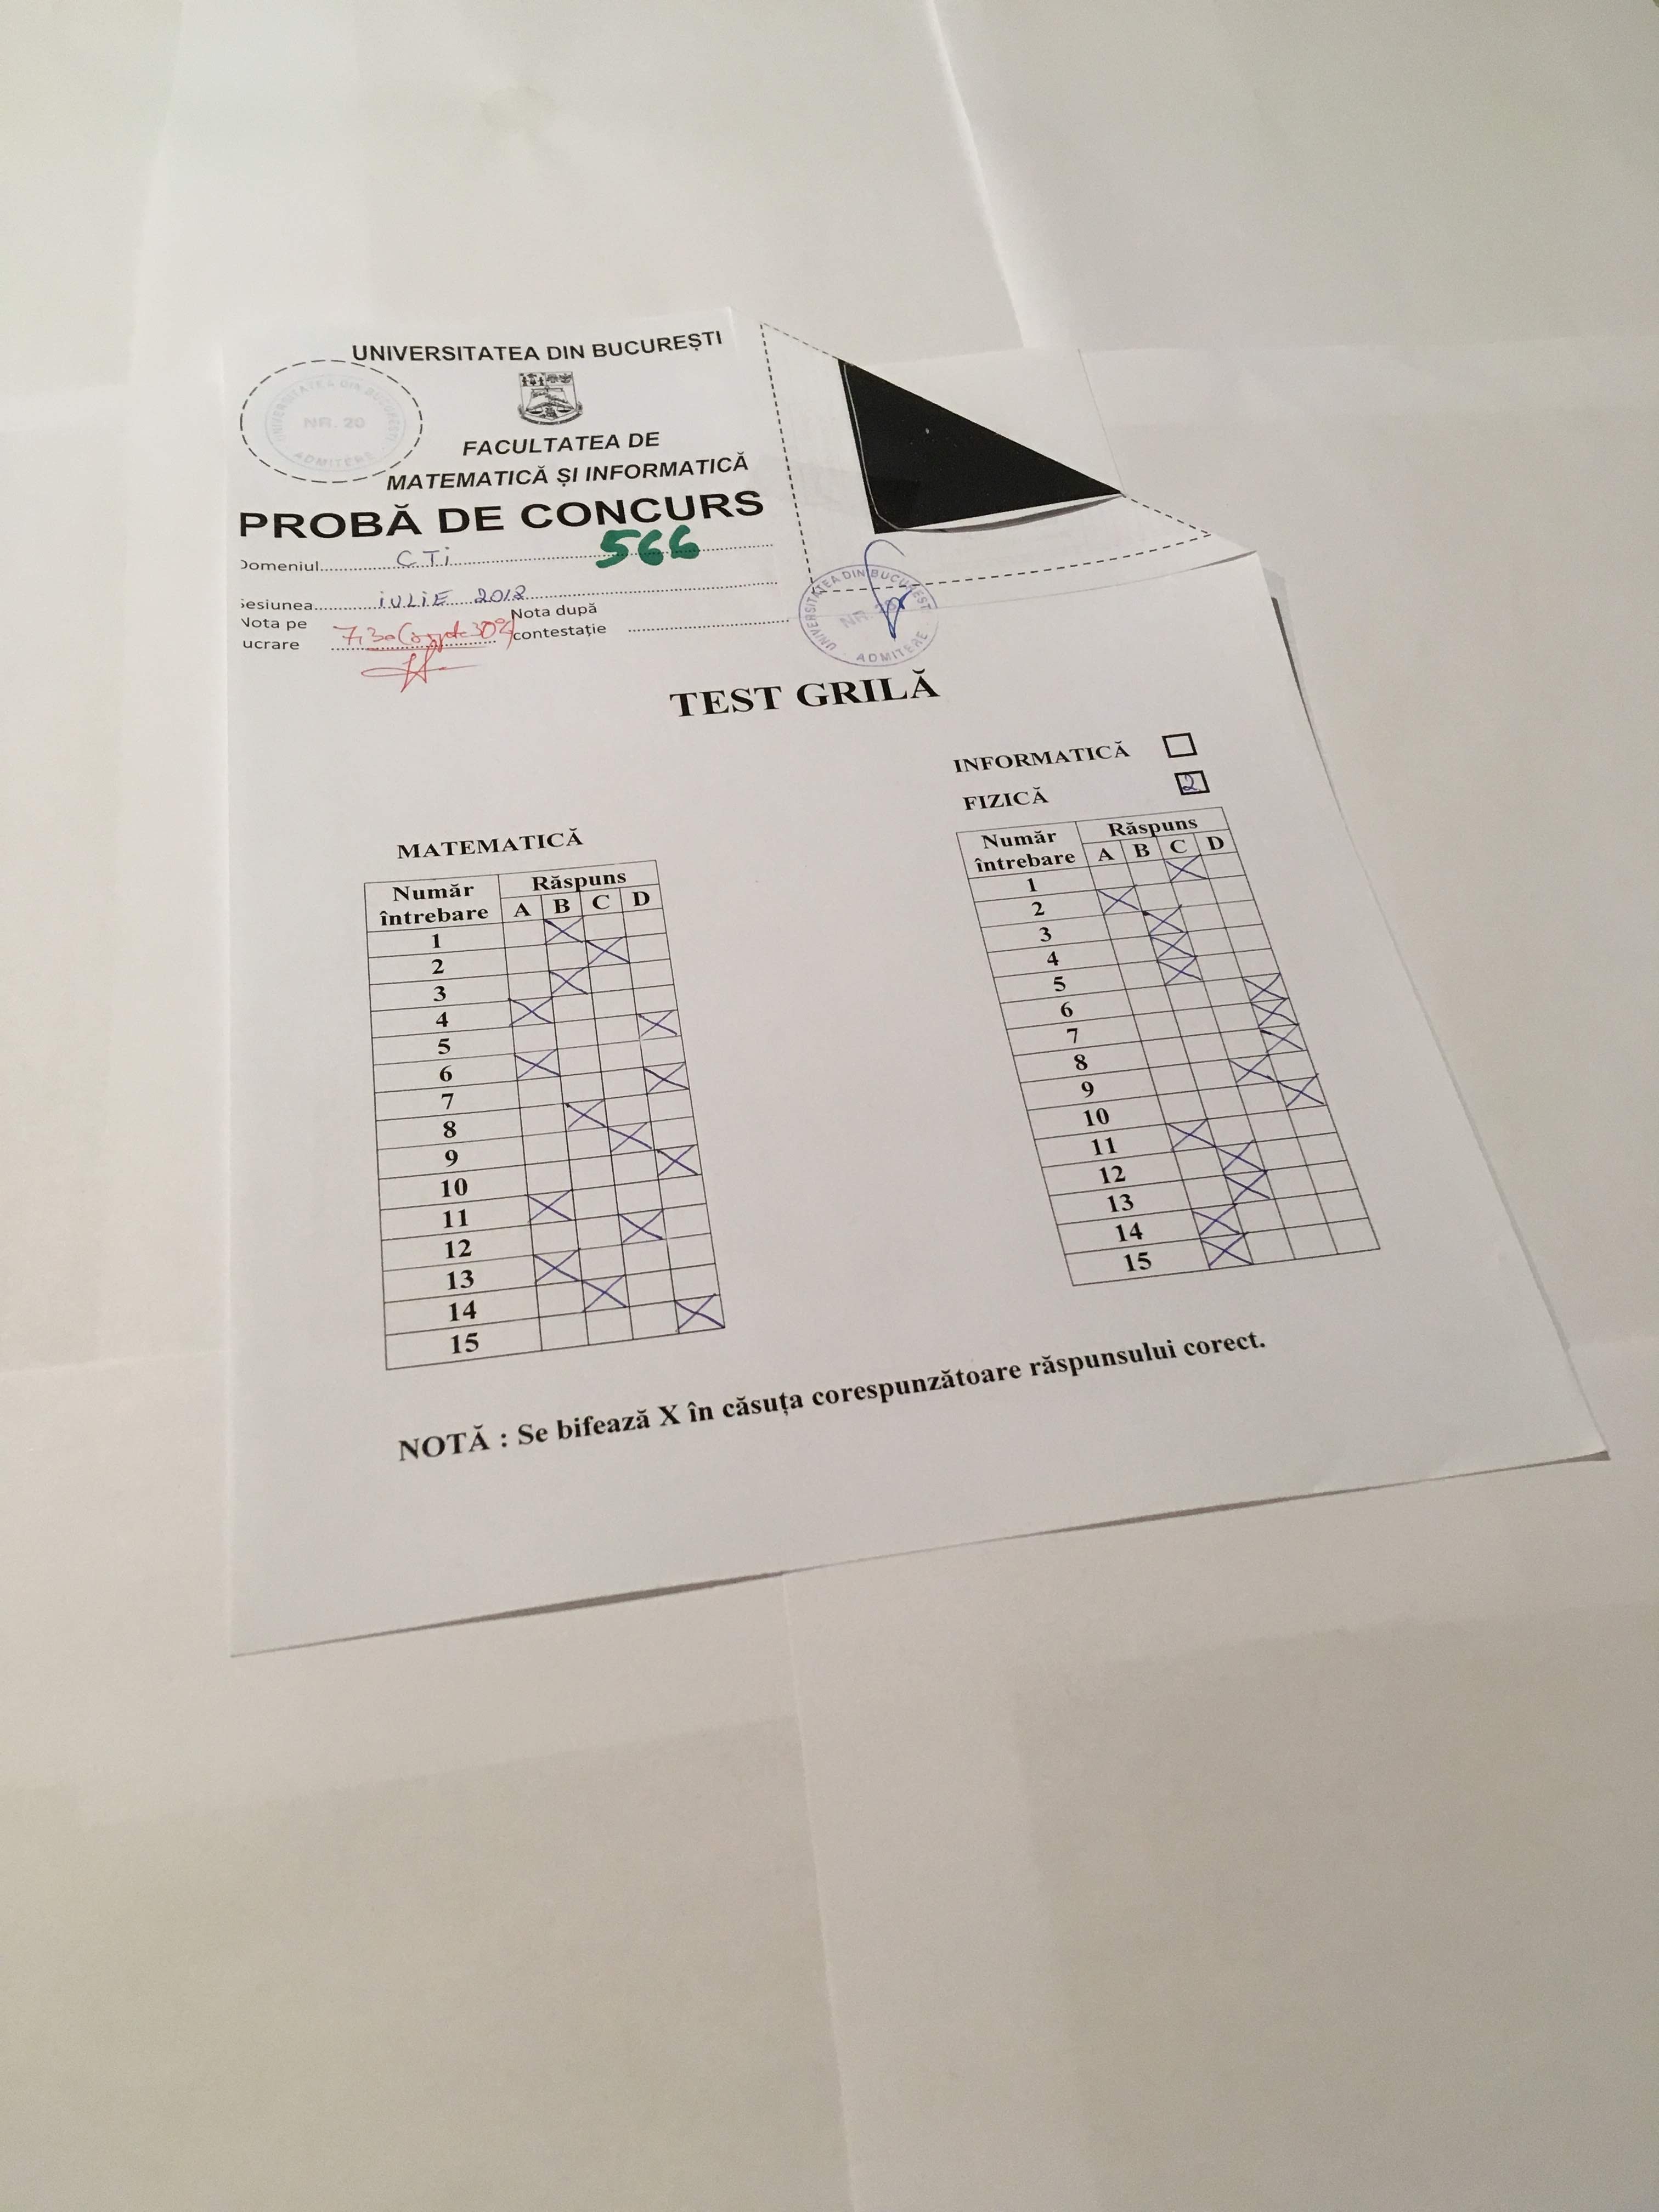 UNIVERSITATEA DIN BUCUREȘTI
UNIVERSITATEA DIN BUCUREȘTI
NR. 20
ADMITERE
FACULTATEA DE
MATEMATICĂ ȘI INFORMATICĂ
PROBĂ DE CONCURS
Domeniul CTi 566
Sesiunea iULiE 2018
Nota pe
ucrare 7,30
Nota după
contestație
UNIVERSITATEA DIN BUCUREȘTI
NR.
ADMITERE
TEST GRILĂ
MATEMATICĂ
Număr
întrebare
Răspuns
A B C D
1 X
2 X
3 X
4 X
5 X
6 X
7 X
8 X
9 X
10 X
11 X
12 X
13 X
14 X
15 X
INFORMATICĂ
FIZICĂ 2
Număr
întrebare
Răspuns
A B C D
1 X
2 X
3 X
4 X
5 X
6 X
7 X
8 X
9 X
10 X
11 X
12 X
13 X
14 X
15 X
NOTĂ : Se bifează X în căsuța corespunzătoare răspunsului corect.